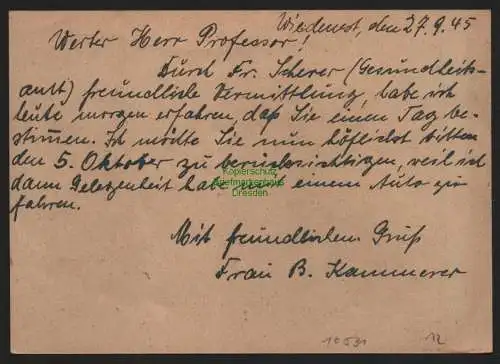 Wiedenest, den 27.9.45
Werter Herr Professor!
Durch Fr. Scherer (Gesundheits-
amt) freundliche Vermittlung, habe ich
heute morgen erfahren, daß Sie einen Tag be-
stimen. Ich möchte Sie nun höflichst bitten
den 5. Oktober zu berücksichtigen, weil ich
dann Gelegenheit habe mit einem Auto zu
fahren.
Kopierschutz
Briefmarkenhaus
Dresden
Mit freundlichen Gruß
Frau B. Kammerer
12